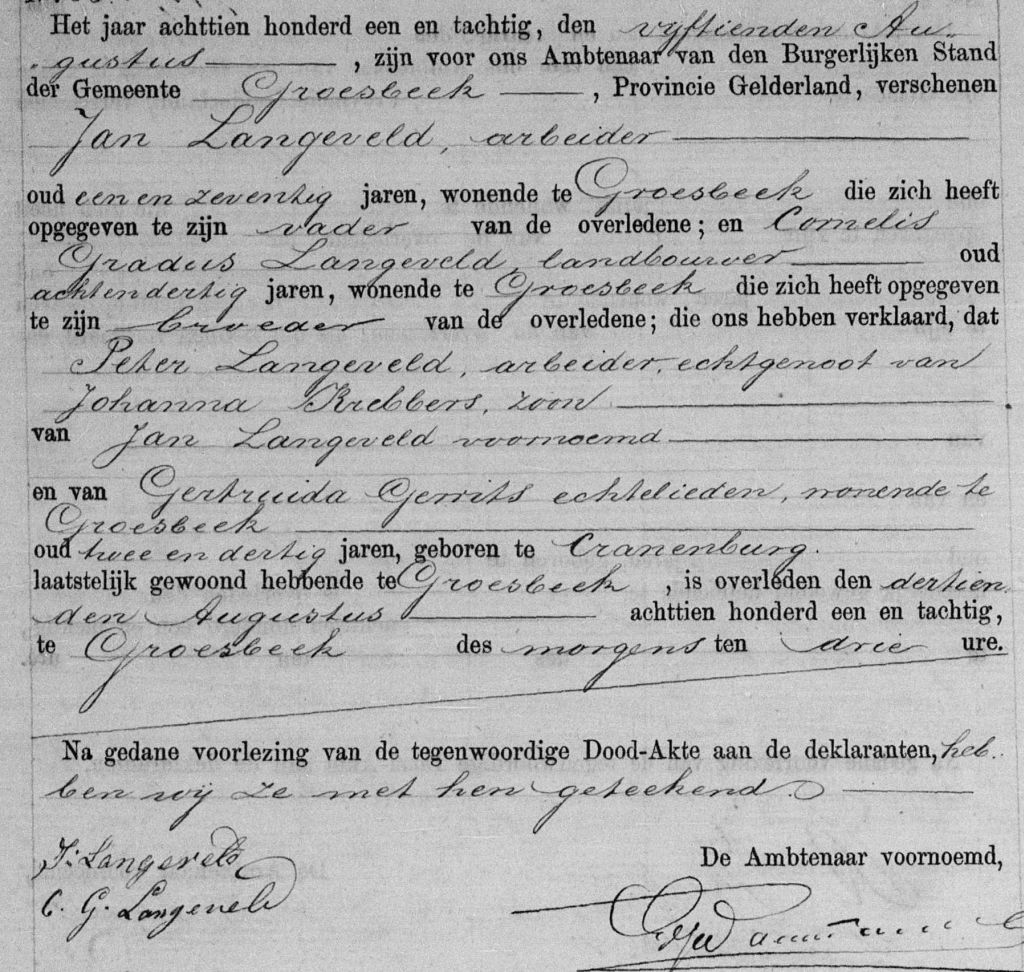 Het jaar achttien honderd een en tachtig, den vijftienden Au-
gustus, zijn voor ons Ambtenaar van den Burgerlijken Stand
der Gemeente Groesbeek, Provincie Gelderland, verschenen
Jan Langeveld, arbeider
oud een en zeventig jaren, wonende te Groesbeek die zich heeft
opgegeven te zijn vader van de overledene; en Cornelis
Gradus Langeveld, landbouwer oud
achtendertig jaren, wonende te Groesbeek die zich heeft opgegeven
te zijn broeder van de overledene; die ons hebben verklaard, dat
Peter Langeveld, arbeider, echtgenoot van
Johanna Krebbers, zoon
van Jan Langeveld voornoemd
en van Gertruida Gerrits echtelieden, wonende te
Groesbeek
oud twee en dertig jaren, geboren te Cranenburg.
laatstelijk gewoond hebbende te Groesbeek, is overleden den dertien
den Augustus achttien honderd een en tachtig,
te Groesbeek des morgens ten drie ure.
Na gedane voorlezing van de tegenwoordige Dood-Akte aan de deklaranten, heb-
ben wij ze met hen geteekend.
J. Langeveld
C. G. Langeveld
De Ambtenaar voornoemd,